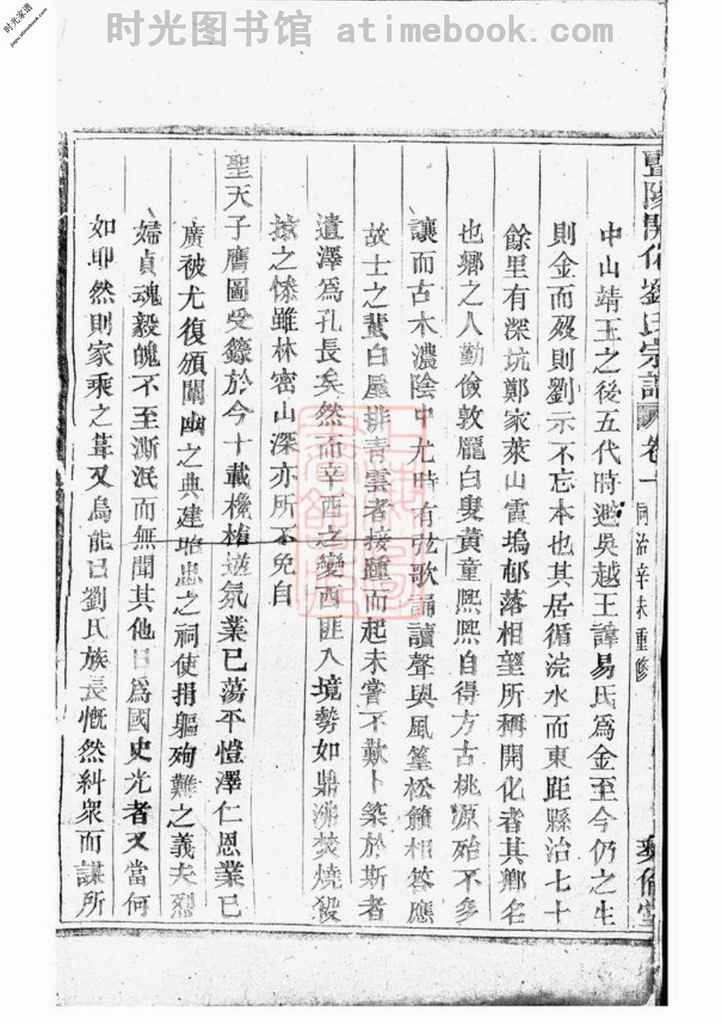 时光图书馆 atimebook.com
时光家谱
暨陽開化劉氏宗譜 卷一 同治辛未重修
中山靖王之後五代時避吳越王諱易氏爲金至今仍之生
則金而殁則劉示不忘本也其居循浣水而東距縣治七十
餘里有深坑鄭家萊山霞塢郁落相望所稱開化者其鄉名
也鄉之人勤儉敦龎白叟黄童熙熙自得方古桃源殆不多
讓而古木濃陰中尤時有弦歌誦讀聲與風篁松籟相答應
故士之蓽白屋排青雲者接踵而起未嘗不歎卜築於斯者
遺澤爲孔長矣然而辛酉之變西匪入境勢如鼎沸焚燒殺
掠之慘雖林密山深亦所不免自
聖天子膺圖受籙於今十載欃槍逆氛業已蕩平愷澤仁恩業已
廣被尤復頒闡幽之典建昭忠之祠使捐軀殉難之義夫烈
婦貞魂毅魄不至澌泯而無聞其他日爲國史光者又當何
如耶然則家乘之葺又烏能已劉氏族長慨然糾衆而謀所